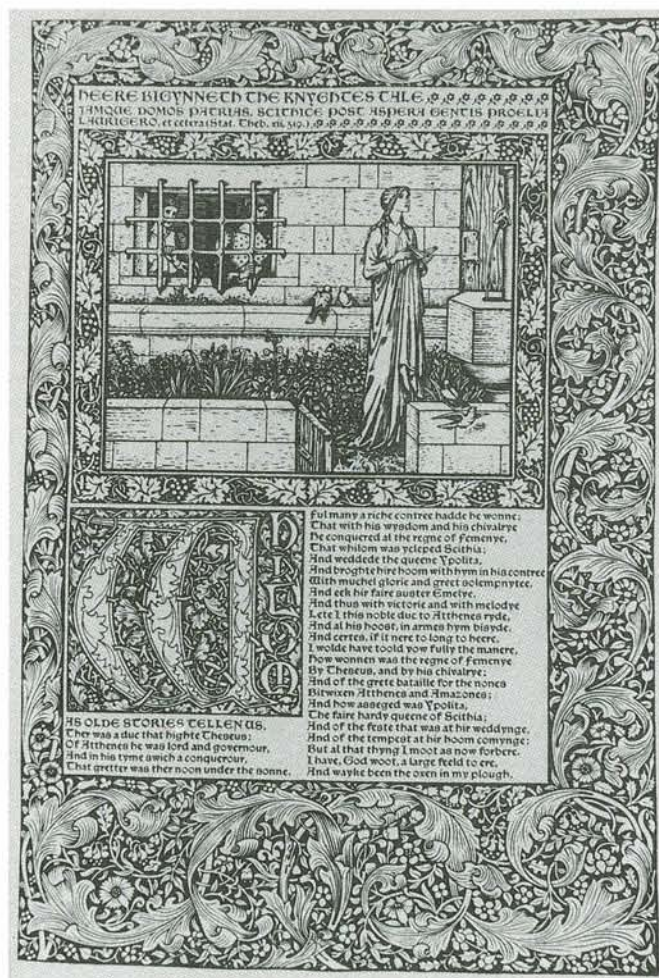 HEERE BIGYNNETH THE KNYGHTES TALE
IAMQUE DOMOS PATRIAS, SCITHICE POST ASPERA GENTIS PROELIA
LAURIGERO, et cetera (Stat. Theb. xii, 519.)
WHILOM
AS OLDE STORIES TELLEN US,
Ther was a duc that highte Theseus;
Of Atthenes he was lord and governour,
And in his tyme swich a conquerour,
That gretter was ther noon under the sonne.
Ful many a riche contree hadde he wonne;
That with his wysdom and his chivalrye
He conquered al the regne of Femenye,
That whilom was ycleped Scithia;
And weddede the queene Ypolita,
And broghte hire hoom with hym in his contree
With muchel glorie and greet solempnytee,
And eek hir faire suster Emelye.
And thus with victorie and with melodye
Lete I this noble duc to Atthenes ryde,
And al his hoost, in armes hym bisyde.
And certes, if it nere to long to heere,
I wolde have toold yow fully the manere,
How wonnen was the regne of Femenye
By Theseus, and by his chivalrye;
And of the grete bataille for the nones
Bitwixen Atthenes and Amazones;
And how asseged was Ypolita,
The faire hardy queene of Scithia;
And of the feste that was at hir weddynge,
And of the tempest at hir hoom comynge;
But al that thyng I moot as now forbere.
I have, God woot, a large feeld to ere,
And wayke been the oxen in my plough.